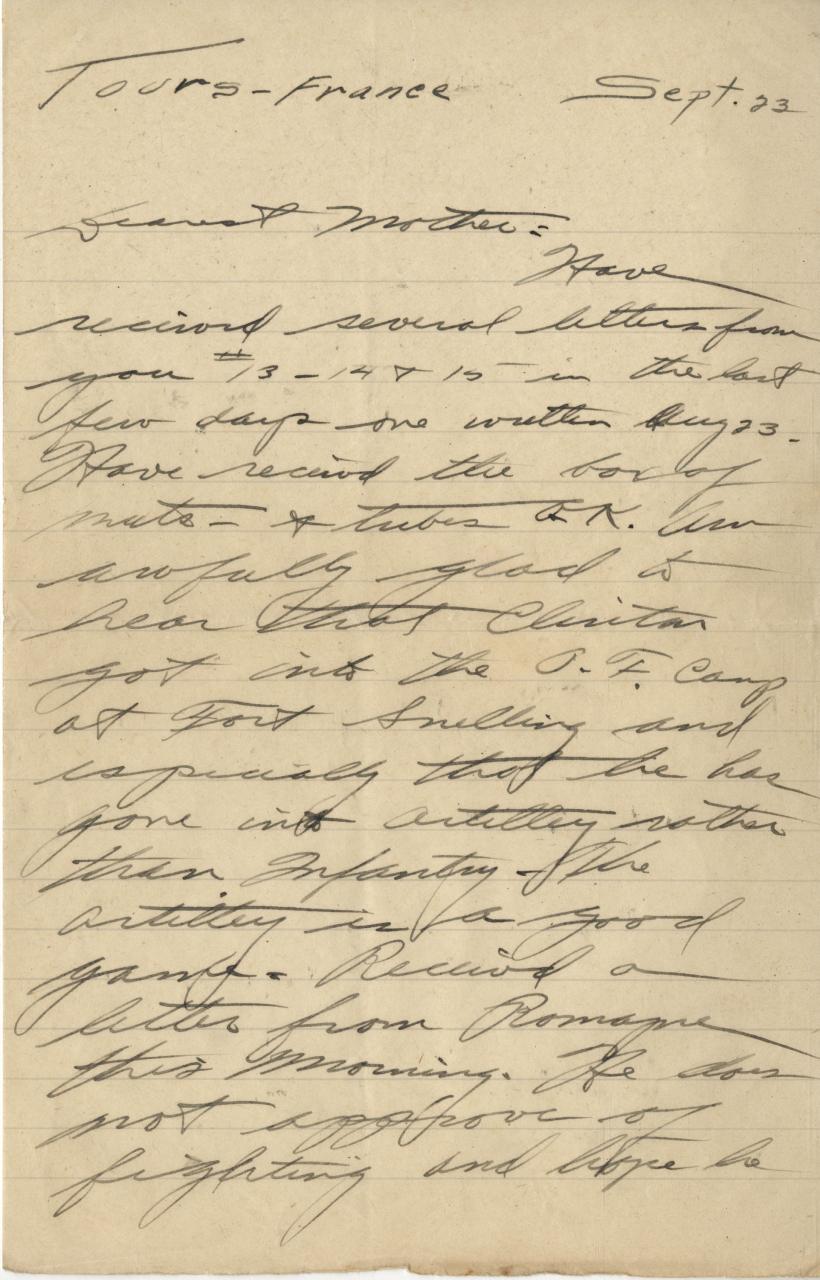 Tours - France Sept. 23
Dearest Mother =
Have
received several letters from
you #13 - 14 & 15 in the last
few days one written Aug 23 -
Have received the box of
nuts - & tubes O.K. Am
awfully glad to
hear that Clinton
got into the O. T. Camp
at Fort Snelling and
especially that he has
gone into artillery rather
than Infantry - The
artillery is a good
game. Received a
letter from Romayne
this morning. He does
not approve of
fighting and hope he